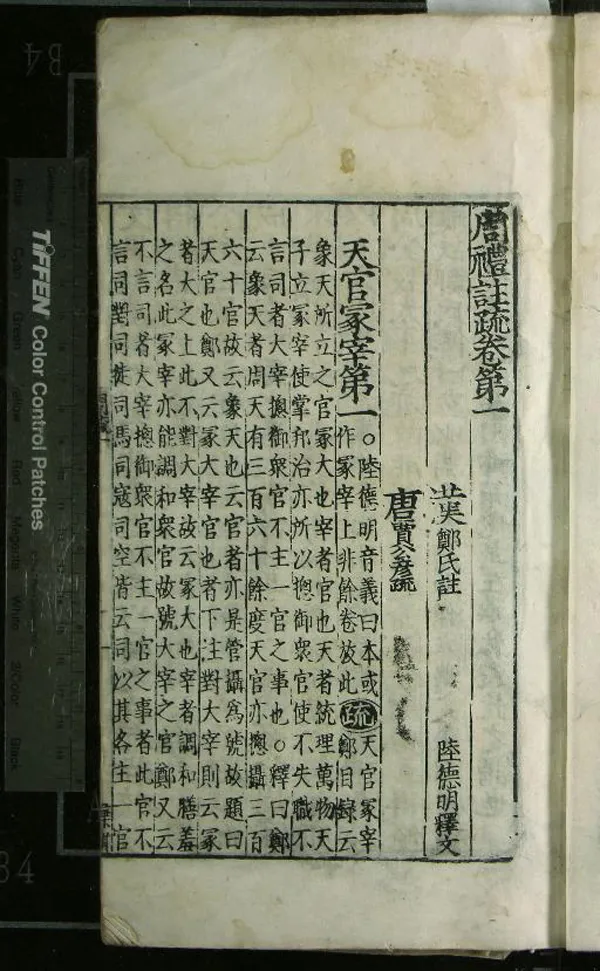 周禮註疏卷第一
漢鄭氏註
陸德明釋文
唐賈公彥疏
天官冢宰第一
○陸德明音義曰本或
作冢宰上非餘卷放此
疏
天官冢宰
鄭目錄云
象天所立之官冢大也宰者官也天者統理萬物天
子立冢宰使掌邦治亦所以摠御衆官使不失職不
言司者大宰摠御衆官不主一官之事也○釋曰鄭
云象天者周天有三百六十餘度天官亦摠攝三百
六十官故云象天也云官者亦是管攝爲號故題曰
天官也鄭又云冢大宰官也者下注對大宰則云冢
者大之上此不對大宰故云冢大也宰者調和膳羞
之名此冢宰亦能調和衆官故號大宰之官鄭又云
不言司者大宰摠御衆官不主一官之事者此官不
言司對司徒司馬司寇司空皆云司以其各主一官
TIFFEN Color Control Patches
B4